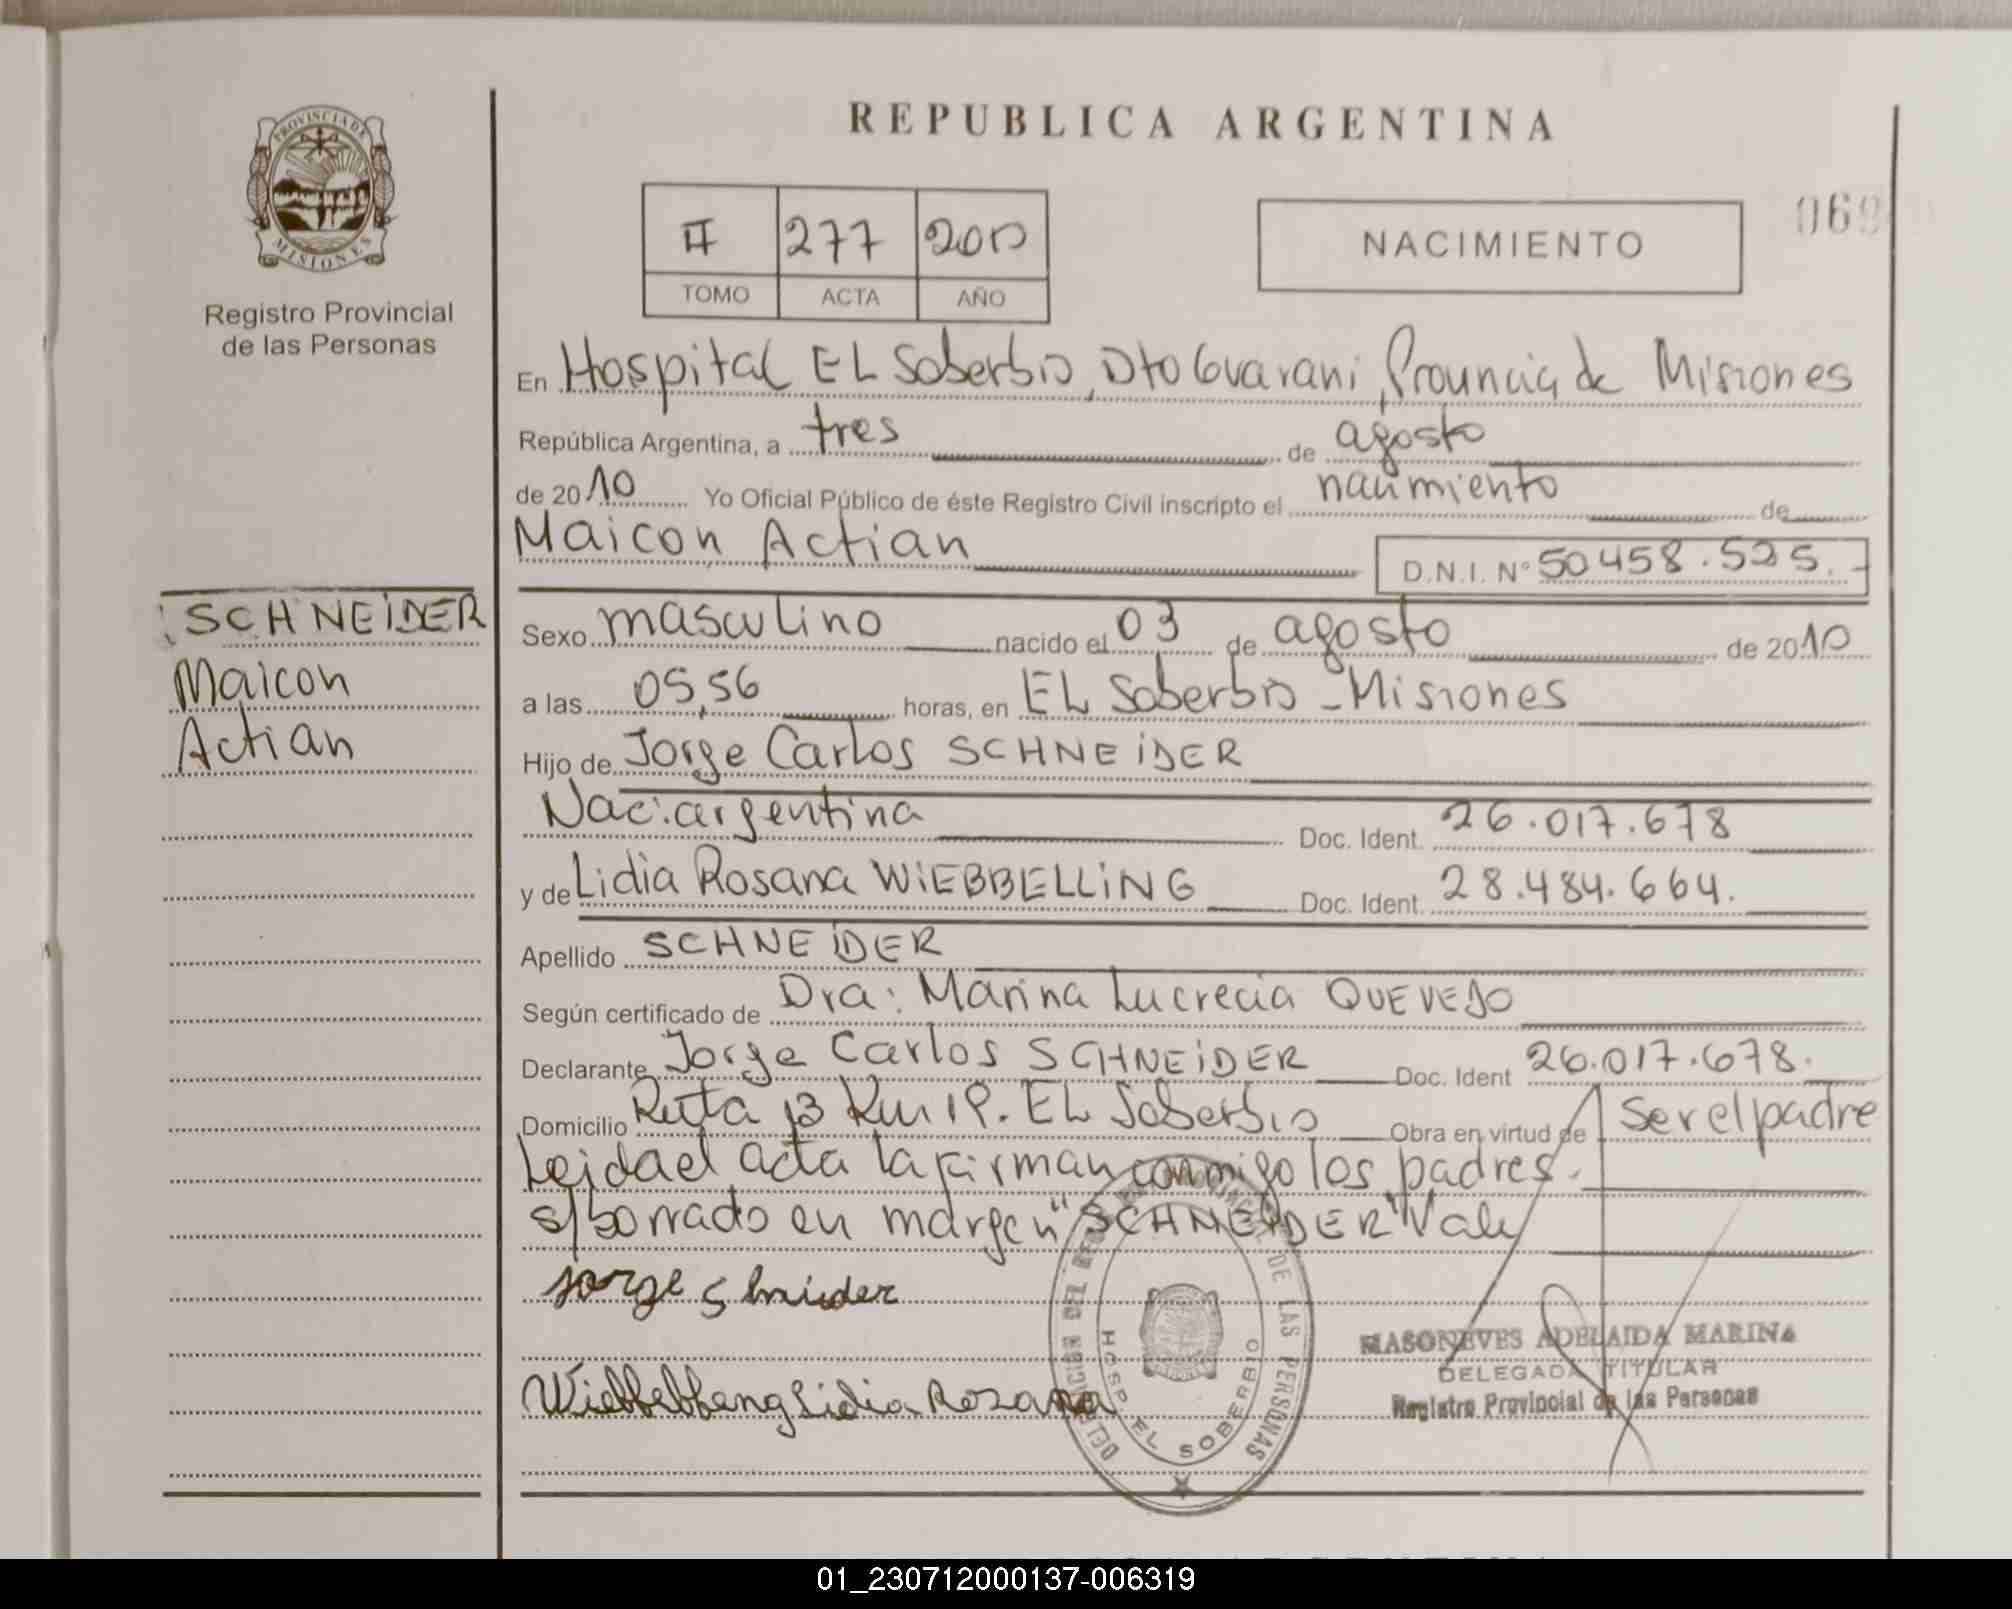 REPUBLICA ARGENTINA
PROVINCIA DE MISIONES
Registro Provincial
de las Personas
II 277 2010
TOMO ACTA AÑO
NACIMIENTO
069
En Hospital EL Soberbio, Dto Guarani, Provincia de Misiones
República Argentina, a tres de agosto
de 2010 Yo Oficial Público de éste Registro Civil inscripto el nacimiento de
Maicon Actian D.N.I. Nº 50458.525.-
SCHNEIDER
Maicon
Actian
Sexo masculino nacido el 03 de agosto de 2010
a las 05,56 horas, en EL Soberbio - Misiones
Hijo de Jorge Carlos SCHNEIDER
Nac: argentina Doc. Ident. 26.017.678
y de Lidia Rosana WIEBBELLING Doc. Ident. 28.484.664.
Apellido SCHNEIDER
Según certificado de Dra: Marina Lucrecia QUEVEDO
Declarante Jorge Carlos SCHNEIDER Doc. Ident 26.017.678.
Domicilio Ruta 13 Km 19. EL Soberbio Obra en virtud de Ser el padre
Leida el acta la firman conmigo los padres.
s/borrado en margen "SCHNEIDER" Vale
Jorge Shnider
Lidia Rozana
DELEGACION DEL REGISTRO PROVINCIAL DE LAS PERSONAS
HOSP. EL SOBERBIO
MASONEVES ADELAIDA MARINA
DELEGADA TITULAR
Registro Provincial de las Personas
01_230712000137-006319